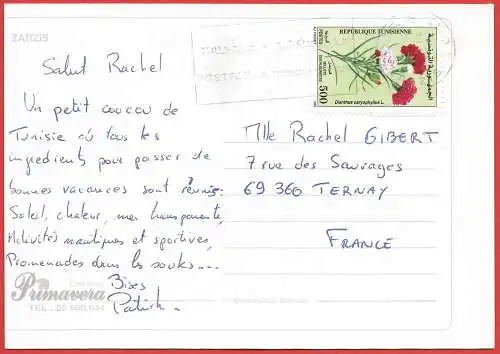 ZARZIS
Salut Rachel
Un petit coucou de
Tunisie où tous les
ingrédients pour passer de
bonnes vacances sont réunis.
Soleil, chaleur, mer transparente,
Activités nautiques et sportives,
Promenades dans les souks...
Bises
Patrick.
Primavera
REPUBLIQUE TUNISIENNE
500
Dianthus caryophyllus L.
Mlle Rachel GIBERT
7 rue des Sauvages
69360 TERNAY
FRANCE